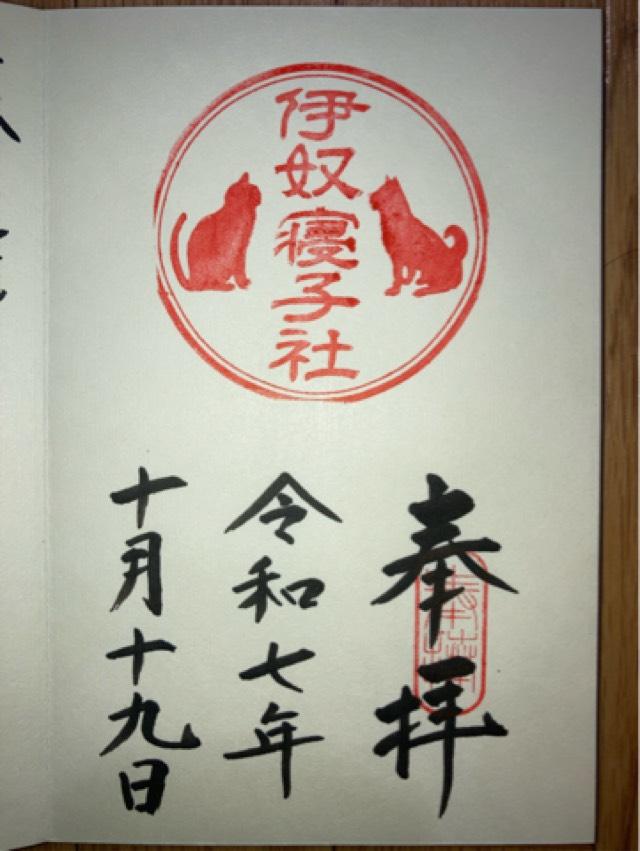 伊奴寝子社
奉拝
令和七年
十月十九日